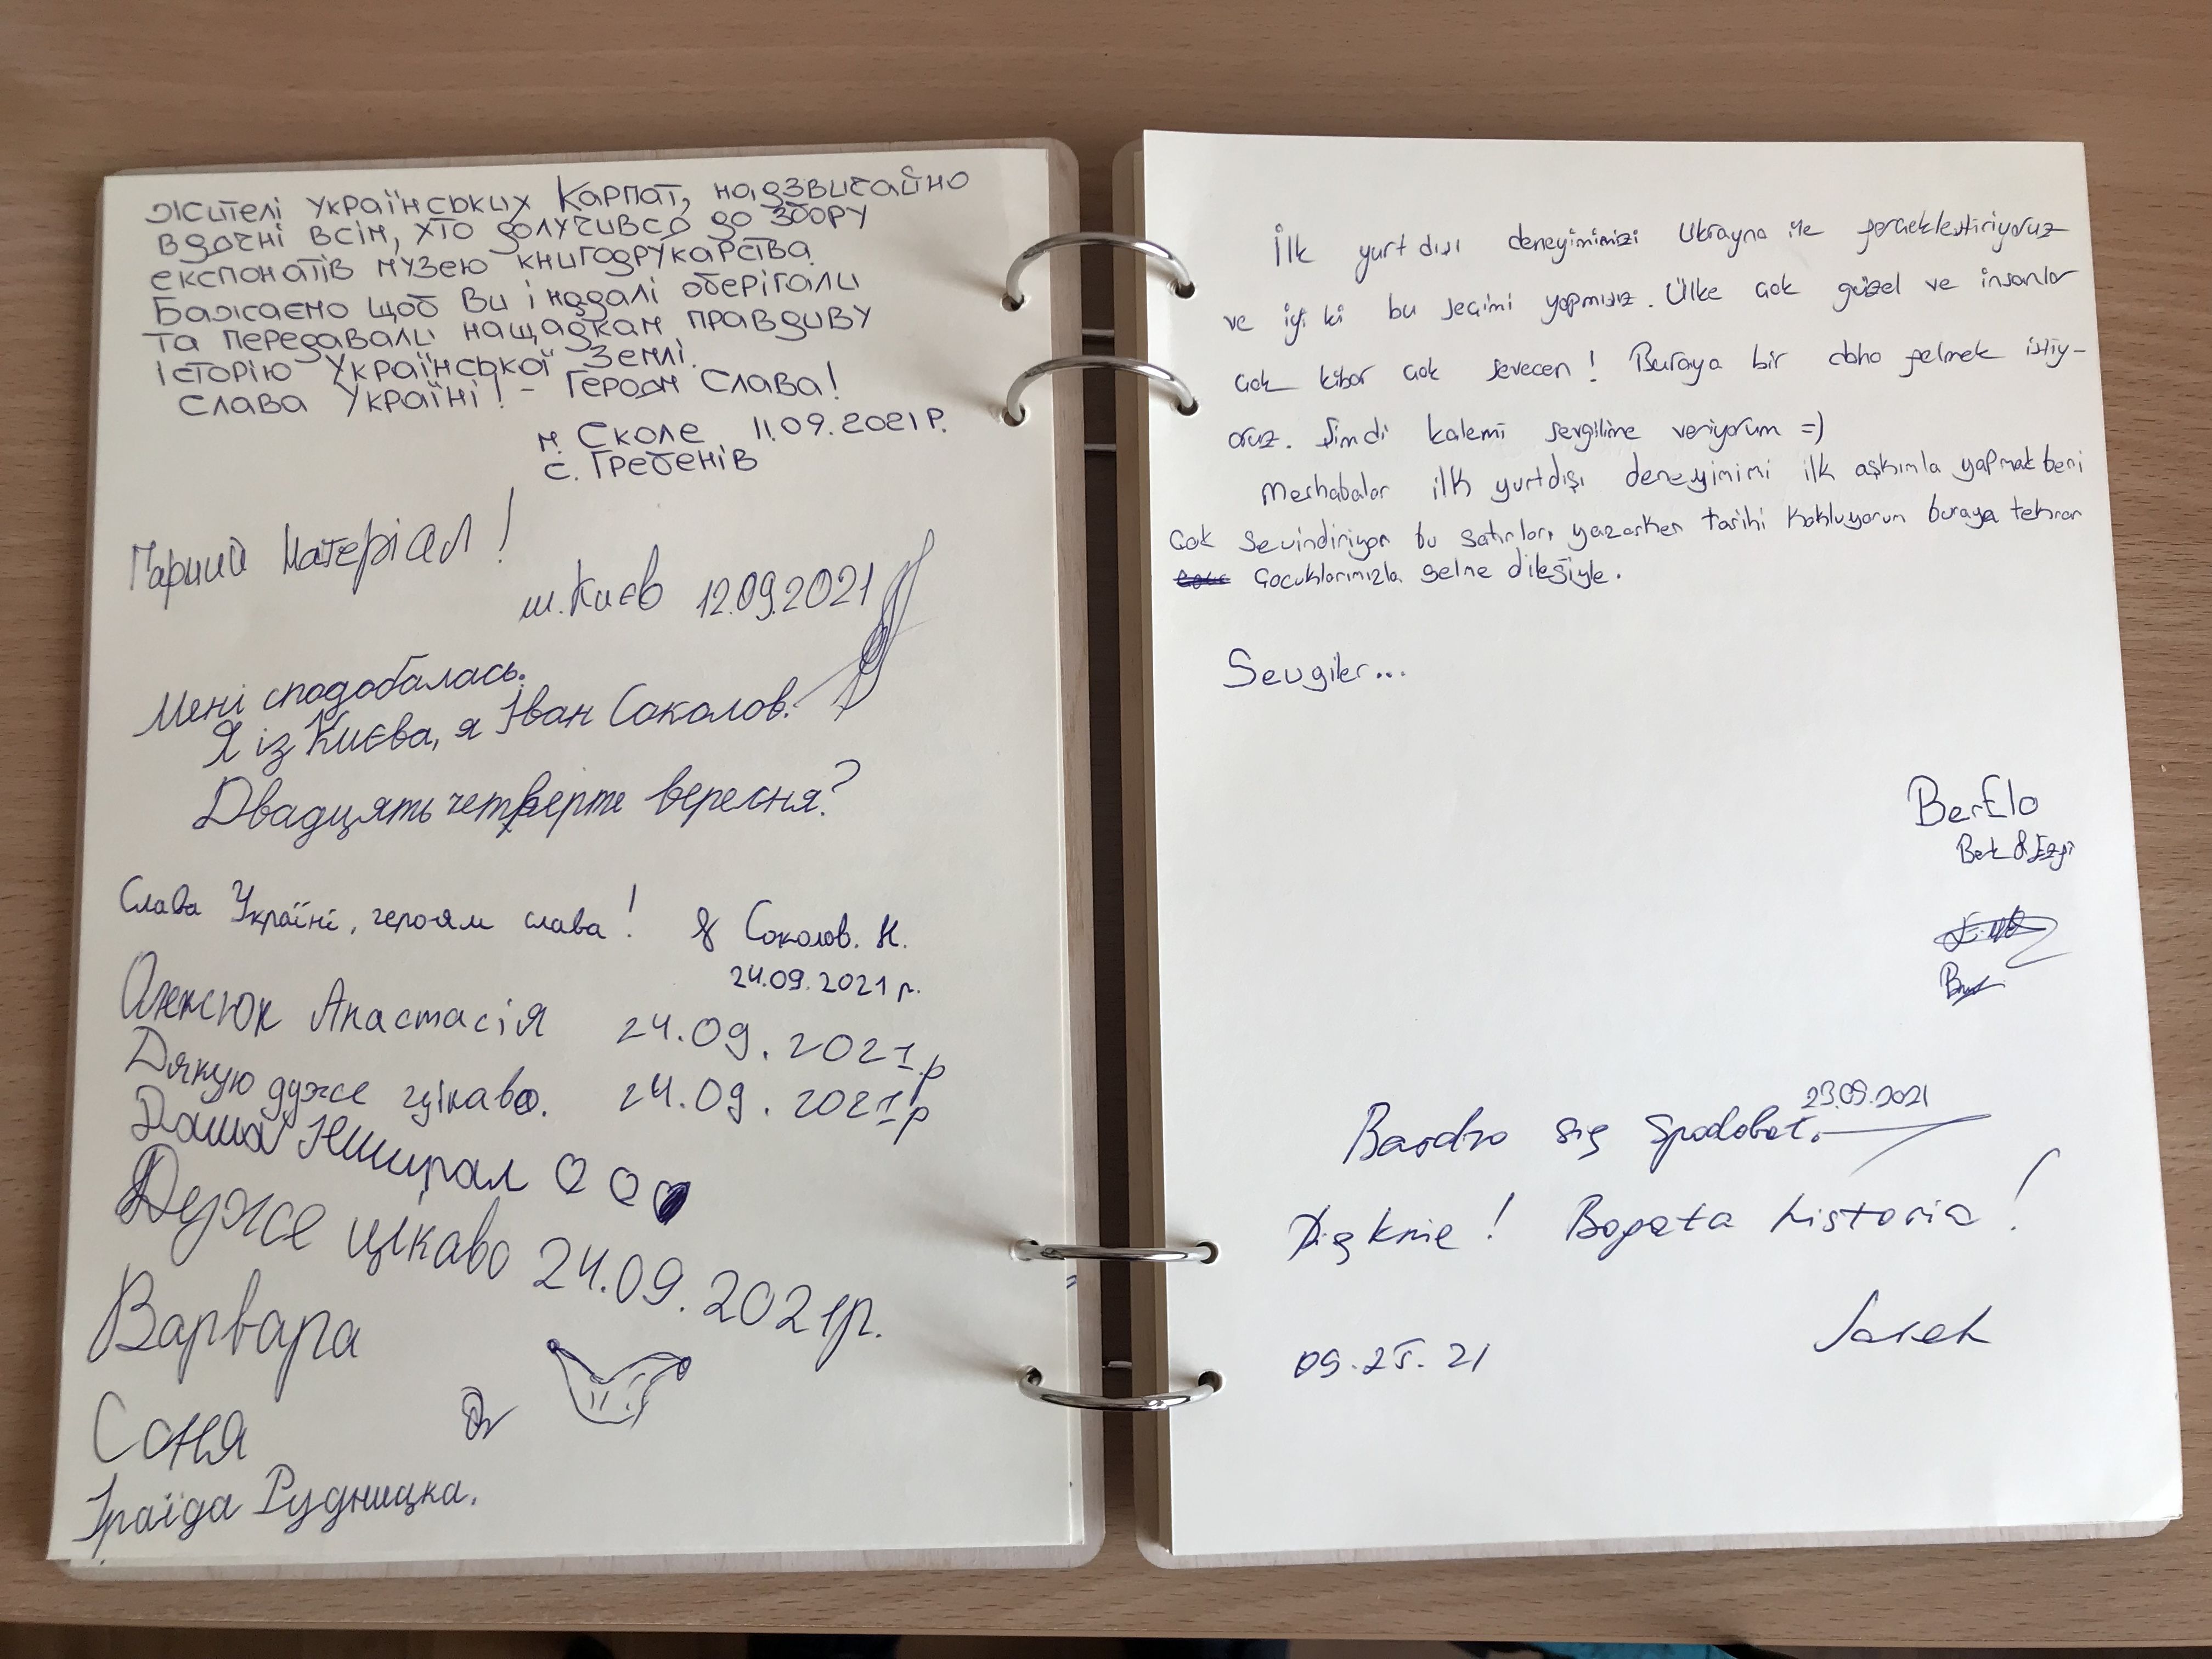 Жителі Українських Карпат, надзвичайно
вдячні всім, хто долучився до збору
експонатів музею книгодрукарства.
Бажаємо щоб Ви і надалі оберігали
та передавали нащадкам правдиву
історію Української Землі.
Слава Україні! - Героям Слава!
м. Сколе 11.09.2021р.
с. Гребенів
Гарний матеріал!
м. Київ 12.09.2021
Мені сподобалась.
Я із Києва, я Іван Соколов.
Двадцять четверте вересня?
Слава Україні, героям слава! Соколов. Н.
24.09.2021 р.
Олексюк Анастасія 24.09.2021р
Дякую дуже цікаво. 24.09.2021р
Даша
Дуже цікаво 24.09.2021р.
Варвара
Соня
Іраїда Рудницка.
İlk yurt dışı deneyimimizi Ukrayna ile gerçekleştiriyoruz
ve iyi ki bu seçimi yapmışız. Ülke çok güzel ve insanlar
çok kibar çok sevecen! Buraya bir daha gelmek istiy-
oruz. Şimdi kalemi sevgilime veriyorum =)
Merhabalar ilk yurtdışı deneyimimi ilk aşkımla yapmak beni
çok sevindiriyor bu satırları yazarken tarihi kokluyorum buraya tekrar
çocuklarımızla gelme dileğiyle.
Sevgiler...
BerElo
Berk & Ezgi
23.09.2021
Bardzo się spodobał.
Pięknie! Bogata historia!
Jarek
09.25.21